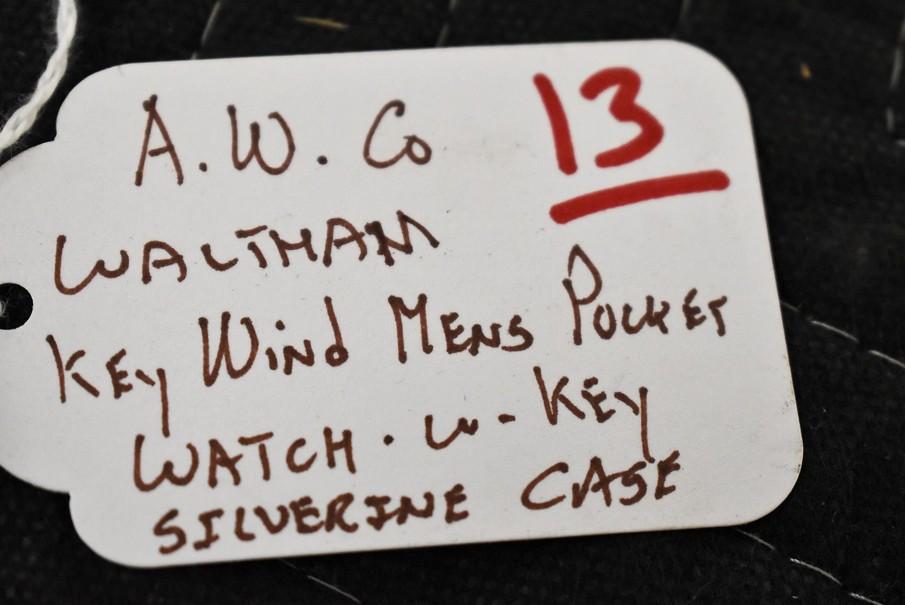 A.W. Co 13
WALTHAM
KEy Wind MENS POCKET
WATCH. w- KEy
SILVERINE CASE